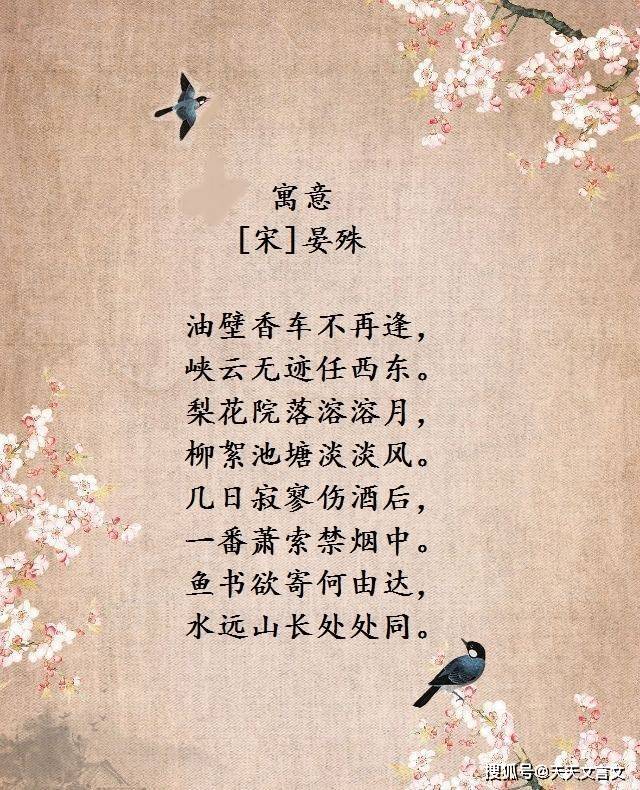 寓意
[宋]晏殊
油壁香车不再逢，
峡云无迹任西东。
梨花院落溶溶月，
柳絮池塘淡淡风。
几日寂寥伤酒后，
一番萧索禁烟中。
鱼书欲寄何由达，
水远山长处处同。
搜狐号@天天文言文